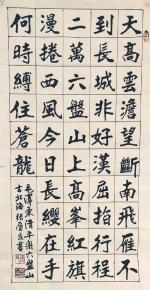 天高雲澹望斷南飛雁不
到長城非好漢屈指行程
二萬六盤山上高峯紅旗
漫捲西風今日長纓在手
何時縛住蒼龍
毛澤東清平樂六盤山
北海書